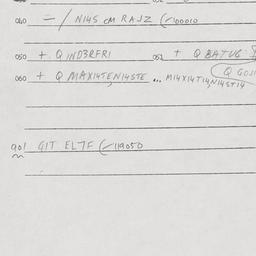 040 = / N14S CM RAJZ (-100010
050 + Q IND3RFRI 052 + Q BATUG
060 + Q MAX14TEN14STE ... M14X14T14N14ST14 Q GOJ
901 GIT EL7F (-119050